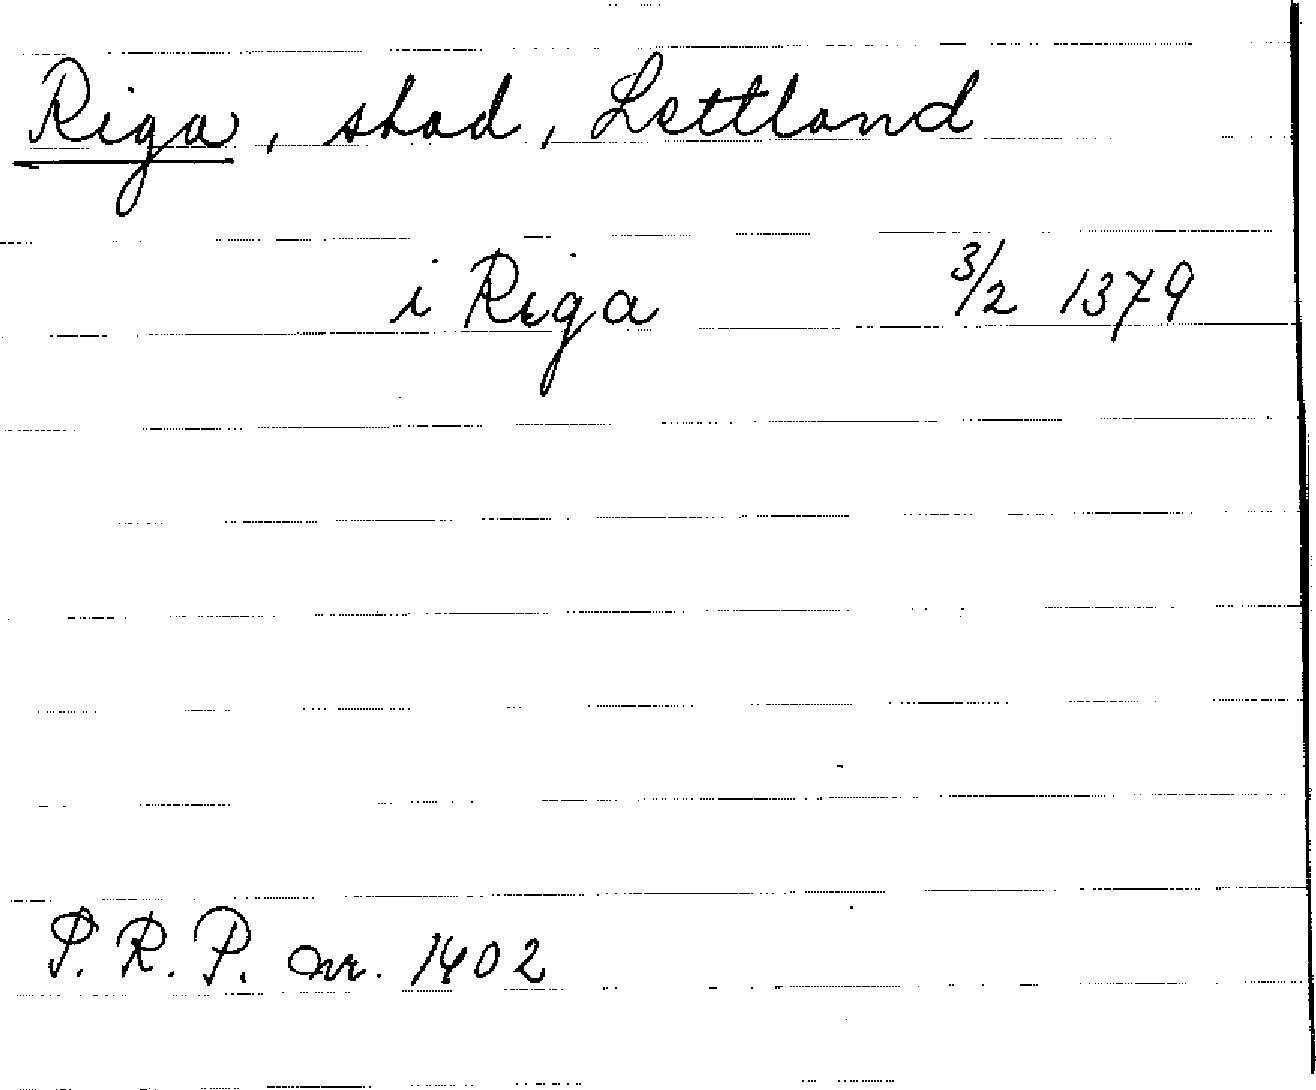 Riga, stad, Lettland
i Riga 3/2 1379
S.R.P. nr. 1402